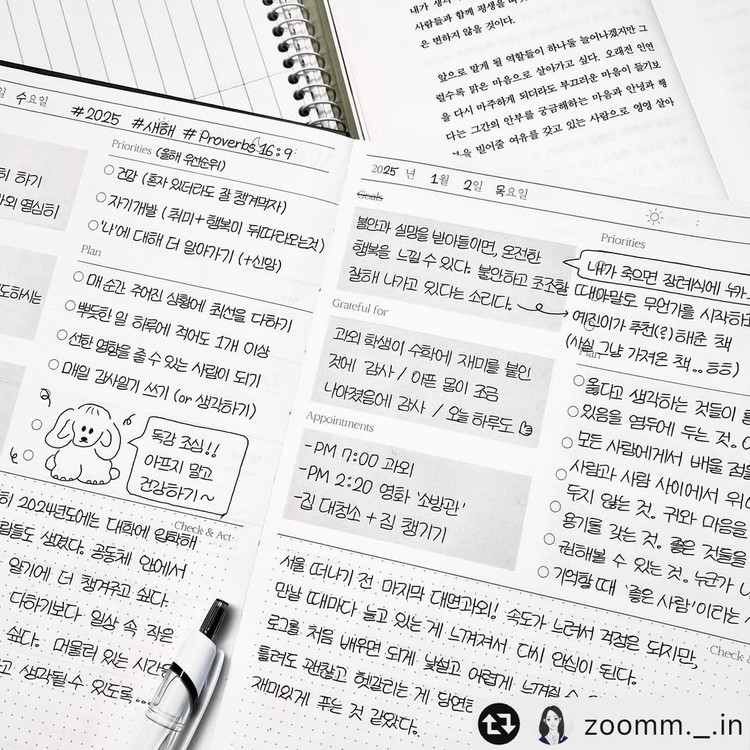 사람들과 함께 평생을
은 변하지 않을 것이다.
앞으로 맡게 될 역할들이 하나둘 늘어나겠지만 그
럴수록 맑은 마음으로 살아가고 싶다. 오래전 인연
을 다시 마주하게 되더라도 부끄러운 마음이 들기보
다는 그간의 안부를 궁금해하는 마음과 안녕과 행
복을 빌어줄 여유를 갖고 있는 사람으로 영영 살아
일 수요일
#2025 #새해 #Proverbs 16:9
하기
열심히
Priorities (올해 우선순위)
건강 (혼자 있더라도 잘 챙겨먹자)
자기개발 (취미+행복이 뒤따라오는것)
'나'에 대해 더 알아가기 (+신앙)
Plan
매 순간 주어진 상황에 최선을 다하기
뿌듯한 일 하루에 적어도 1개 이상
선한 영향을 줄 수 있는 사람이 되기
매일 감사일기 쓰기 (or 생각하기)
독감 조심!!
아프지 말고
건강하기~
Check & Act
2024년도에는 대학에 입학해
생겼다. 공동체 안에서
알기에 더 챙겨주고 싶다.
다하기보다 일상 속 작은
싶다. 머물러 있는 시간
생각될 수 있도록...
2025 년 1월 2일 목요일
Goals
불안과 실망을 받아들이면, 온전한
행복을 느낄 수 있다. 불안하고 초조함
잘해 나가고 있다는 소리다.
Grateful for
과외 학생이 수학에 재미를 붙인
것에 감사 / 아픈 몸이 조금
나아졌음에 감사 / 오늘 하루도
Appointments
-PM 17:00 과외
-PM 2:20 영화 '소방관'
-집 대청소 + 짐 챙기기
Priorities
내가 죽으면 장례식에 누가
때야말로 무언가를 시작하
예진이가 추천(?)해준 책
(사실 그냥 가져온 책..ㅎㅎ)
Plan
옳다고 생각하는 것들이
있음을 염두에 두는 것.
모든 사람에게서 배울 점을
사람과 사람 사이에서
두지 않는 것. 귀와 마음을
용기를 갖는 것. 좋은 것들을
권해볼 수 있는 것. 누군가
기억할 때 '좋은 사람'이라는
Check &
서울 떠나기 전 마지막 대면과외! 속도가 느려서 걱정은 되지만,
만날 때마다 늘고 있는 게 느껴져서 다시 안심이 된다.
로그를 처음 배우면 되게 낯설고 어렵게 느껴질 수
틀려도 괜찮고 헷갈리는 게 당연
재미있게 푸는 것 같았다.
zoomm._.in